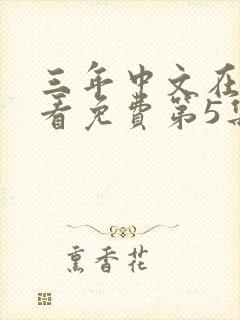 三年中文在
看免费第5集
熏香花